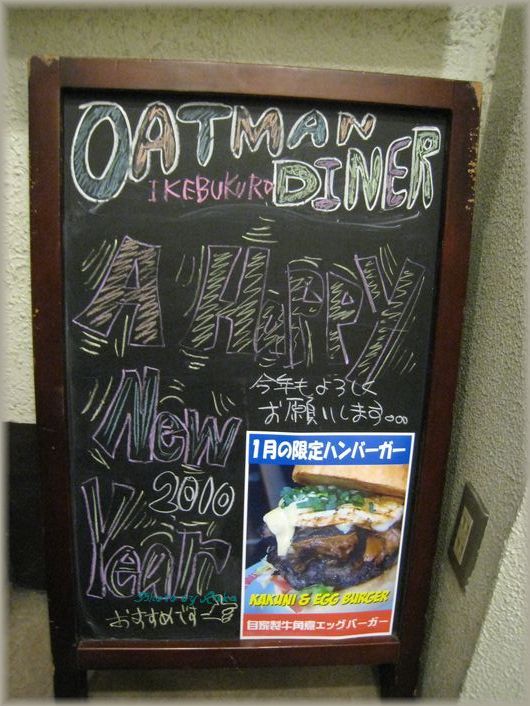 OATMAN
IKEBUKURO DINER
A HAPPY
今年もよろしく
お願いします。。。
New
2010
Year
1月の限定ハンバーガー
KAKUNI & EGG BURGER
自家製牛角煮エッグバーガー
おすすめです